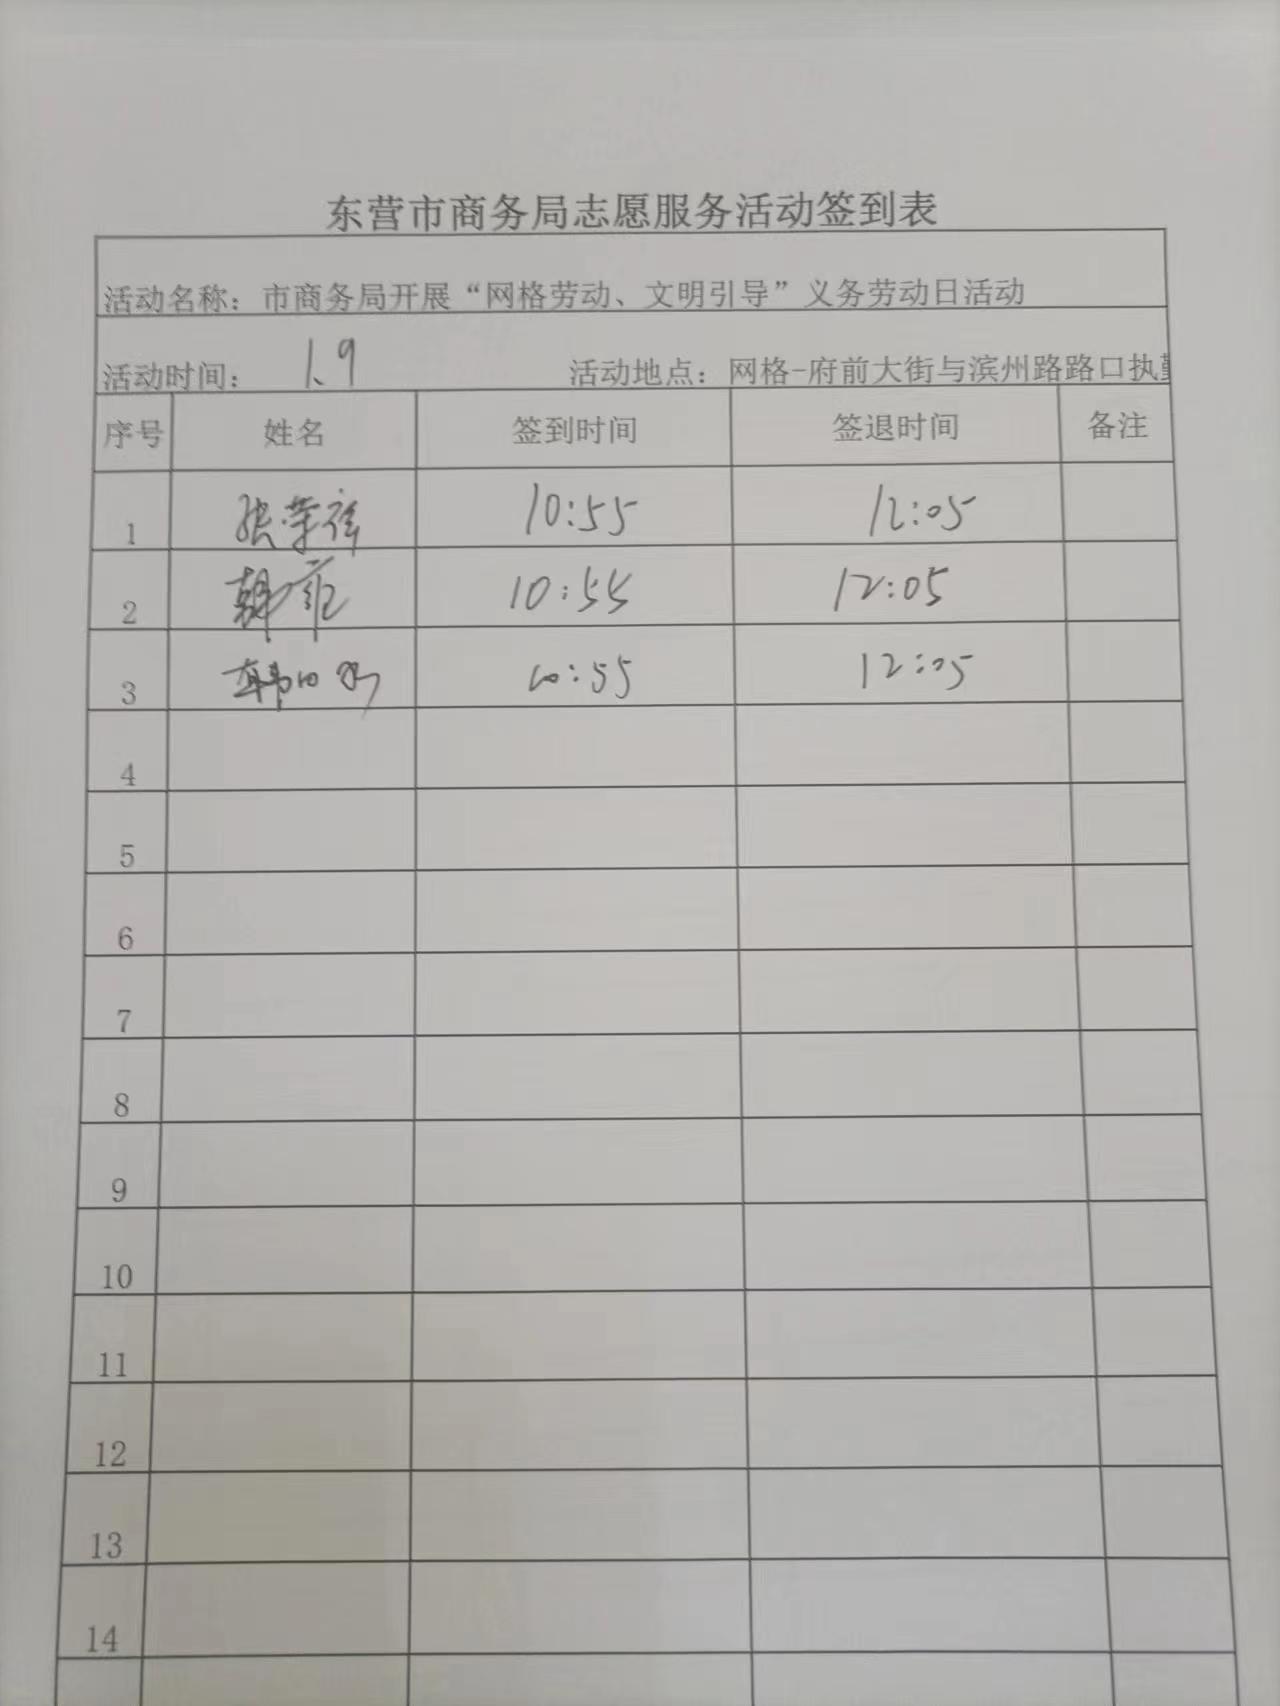 东营市商务局志愿服务活动签到表
活动名称：市商务局开展“网格劳动、文明引导”义务劳动日活动
活动时间： 1.9 活动地点：网格-府前大街与滨州路路口执勤
序号 姓名 签到时间 签退时间 备注
1 张荣祥 10:55 12:05
2 韩 10:55 12:05
3 韩 10:55 12:05
4
5
6
7
8
9
10
11
12
13
14